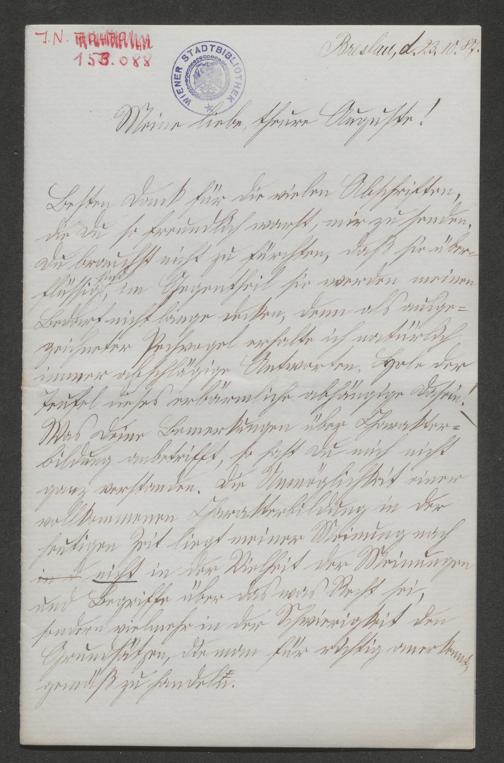 J.N.
153.088
WIENER STADTBIBLIOTHEK
Breslau, d. 23.10.
Meine liebe, theure Auguste!
Besten Dank für die vielen Abschriften,
die Du so freundlich warst, mir zu senden.
Du brauchst nicht zu fürchten, daß sie über-
flüssig sind, im Gegentheil sie werden meinen
Bedarf nicht lange decken, denn als ausge-
zeichneter Pechvogel erhalte ich natürlich
immer abschlägige Antworten. Hole der
Teufel dieses erbärmliche abhängige Dasein!
Was Deine Bemerkungen über Charakter-
bildung anbetrifft, so hast Du mich nicht
ganz verstanden. Die Unmöglichkeit einer
vollkommenen Charakterbildung in der
heutigen Zeit liegt meiner Meinung nach
nicht in der Vielheit der Meinungen
und Begriffe über das was Recht sei,
sondern vielmehr in der Schwierigkeit den
Grundsätzen, die man für richtig anerkennt,
gemäß zu handeln.